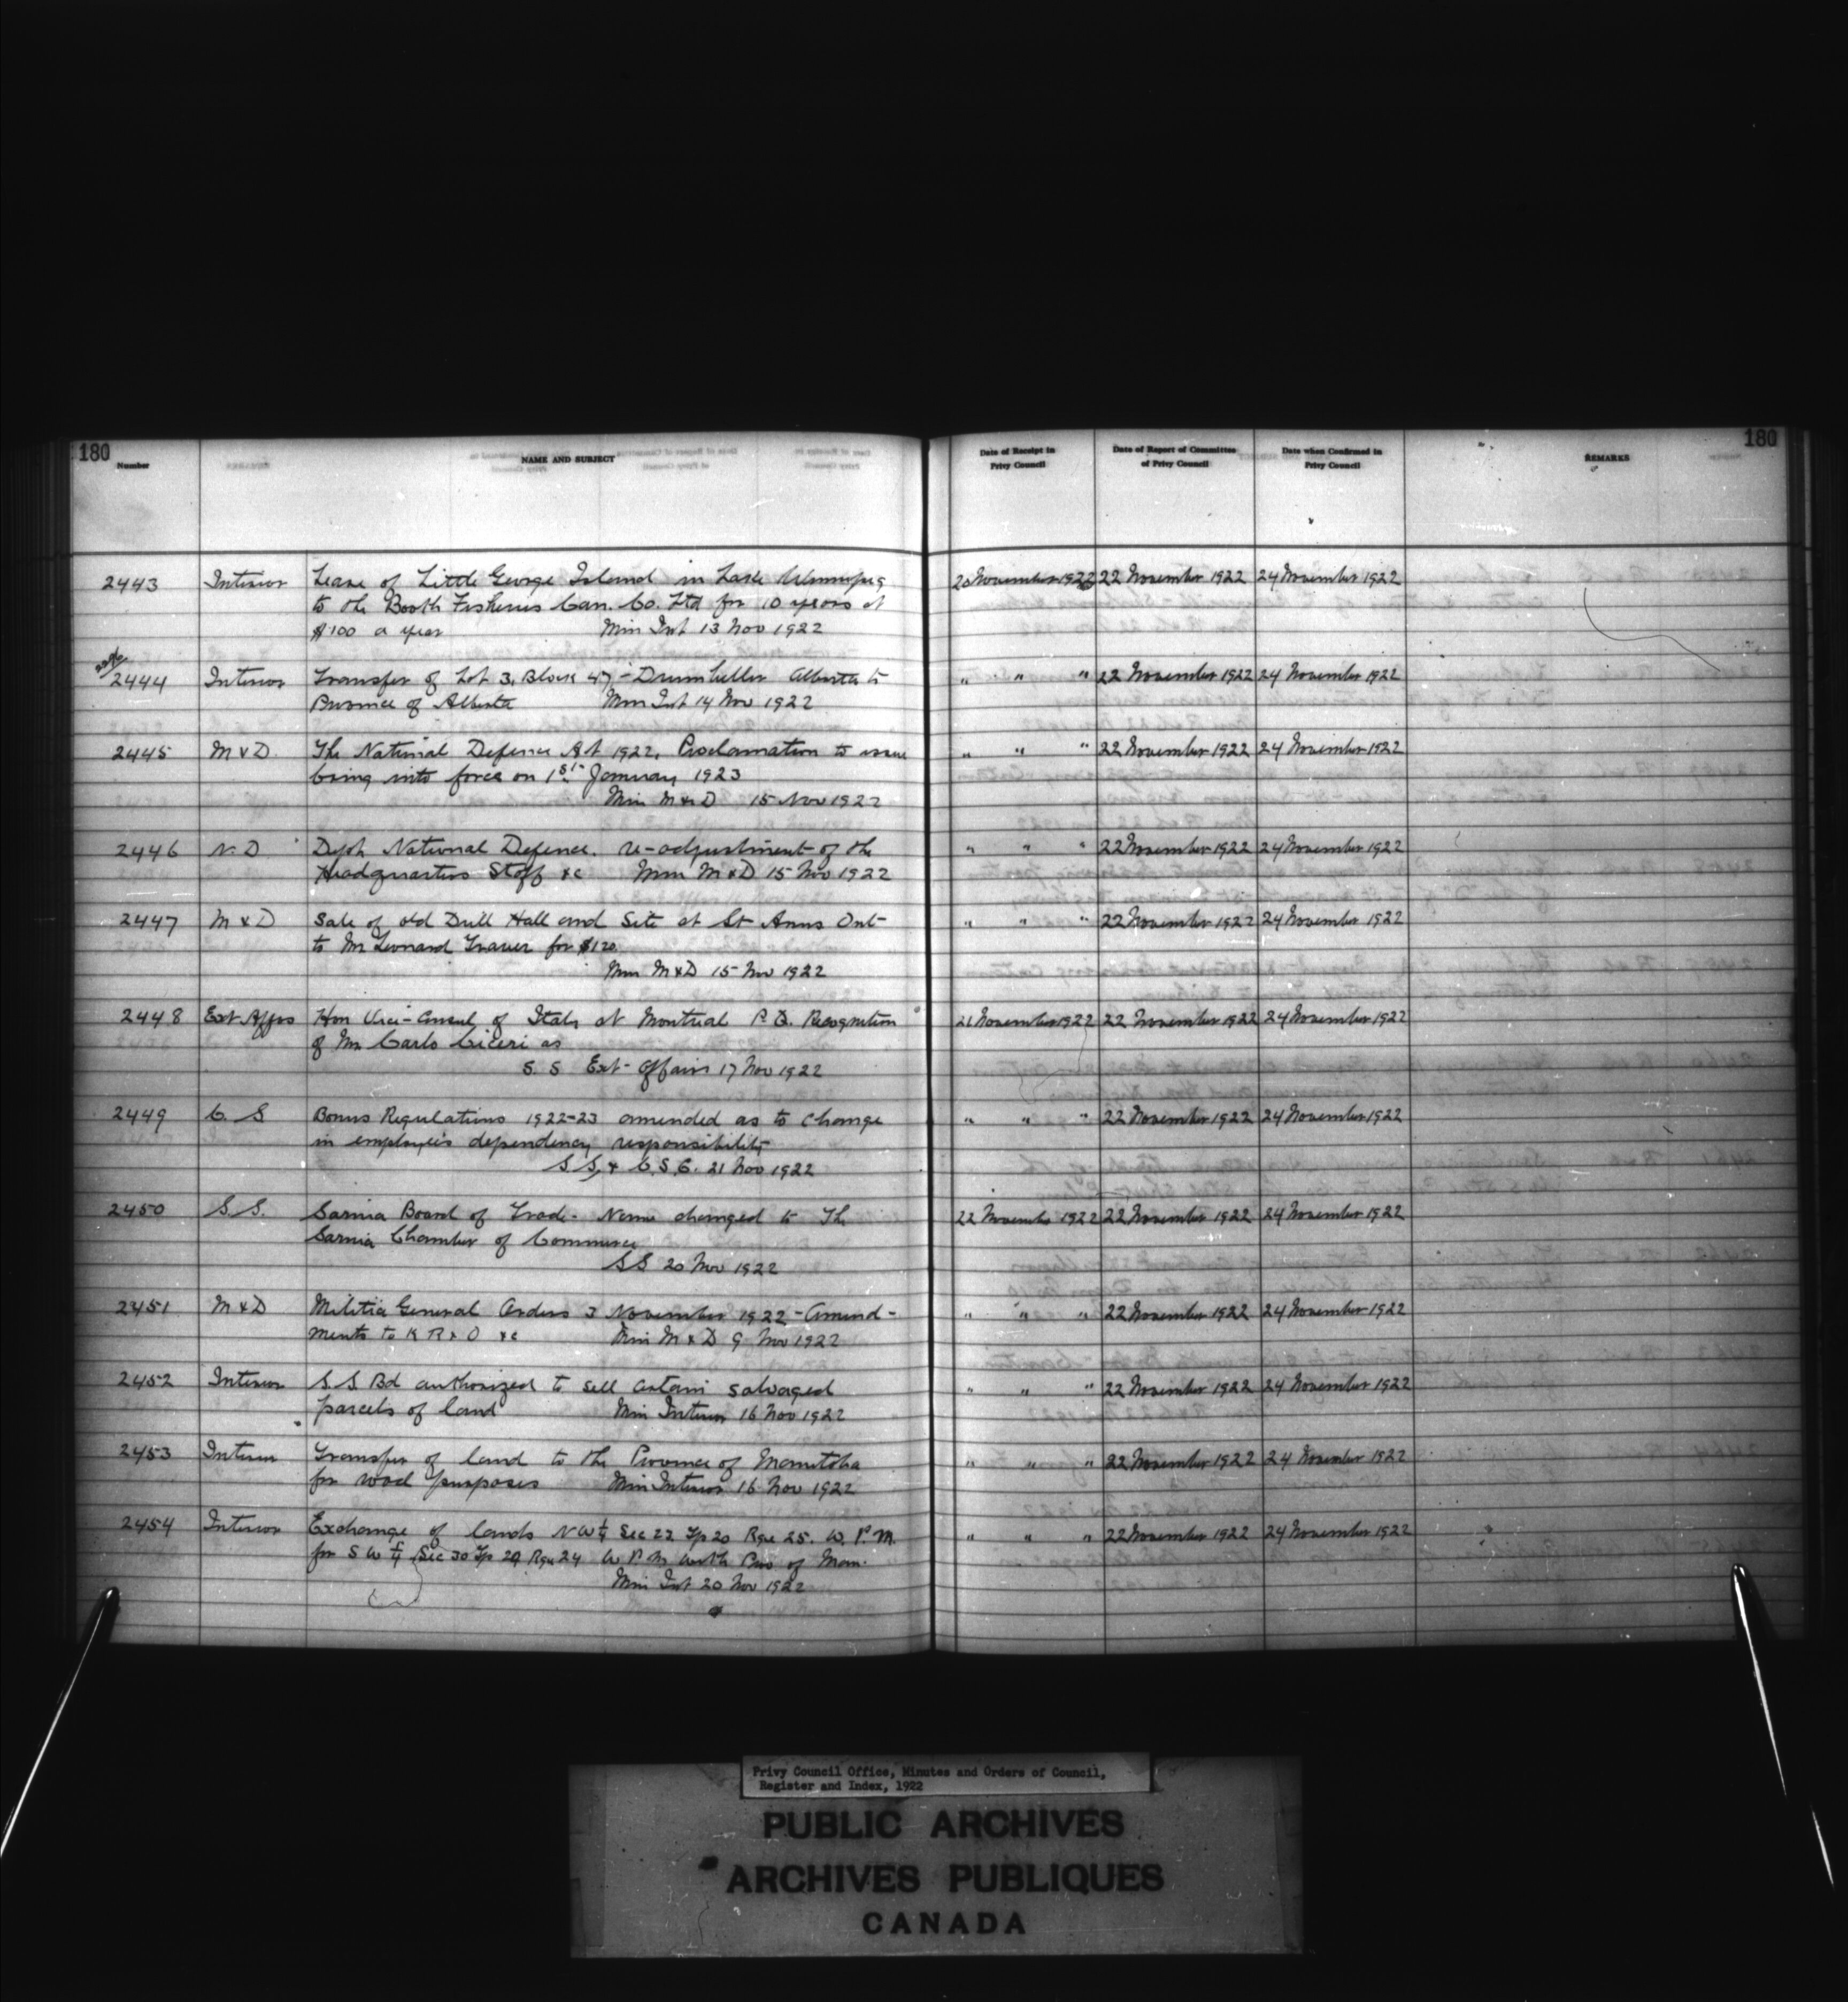 180
180
Number
NAME AND SUBJECT
Date of Receipt in
Privy Council
Date of Report of Committee
of Privy Council
Date when Confirmed in
Privy Council
REMARKS
2443 Interior Lease of Little George Island in Lake Winnipeg 20 November 1922 22 November 1922 24 November 1922
to the Booth Fisheries Can. Co. Ltd for 10 years at
$100 a year Min Int 13 Nov 1922
2444 Interior Transfer of Lot 3, Block 47, - Drumheller Alberta to " " " 22 November 1922 24 November 1922
Province of Alberta Min Int 14 Nov 1922
2445 M & D. The National Defence Act 1922, Proclamation to issue " " " 22 November 1922 24 November 1922
bring into force on 1st January 1923
Min M & D 15 Nov 1922
2446 N. D Dept National Defence. re-adjustment of the " " " 22 November 1922 24 November 1922
Headquarters Staff &c Min M & D 15 Nov 1922
2447 M & D Sale of old Drill Hall and Site at St Anns Ont " " " 22 November 1922 24 November 1922
to Mr Leonard for $120.
Min M & D 15 Nov 1922
2448 Ext. Affrs Hon Vice-Consul of Italy at Montreal P.Q. Recognition 21 November 1922 22 November 1922 24 November 1922
of Mr Carlo Ciceri as
S. S Ext. Affairs 17 Nov 1922
2449 C. S Bonus Regulations 1922-23 amended as to change " " " 22 November 1922 24 November 1922
in employee's dependency responsibility
S.S. & C.S.C. 21 Nov 1922
2450 S.S. Sarnia Board of Trade - Name changed to The 22 November 1922 22 November 1922 24 November 1922
Sarnia Chamber of Commerce
SS 20 Nov 1922
2451 M & D Militia General Orders 3 November 1922 - Amend- " " " 22 November 1922 24 November 1922
ments to K R & O &c Min M & D 9 Nov 1922
2452 Interior S.S. Bd authorized to sell certain salvaged " " " 22 November 1922 24 November 1922
parcels of land Min Interior 16 Nov 1922
2453 Interior Transfer of land to the Province of Manitoba " " " 22 November 1922 24 November 1922
for road purposes Min Interior 16 Nov 1922
2454 Interior Exchange of lands NW¼ Sec 22 Tp 20 Rge 25. W. P. M. " " " 22 November 1922 24 November 1922
for SW¼ Sec 30 Tp 20 Rge 24 W P. M with Prov of Man.
Min Int 20 Nov 1922
Privy Council Office, Minutes and Orders of Council,
Register and Index, 1922
PUBLIC ARCHIVES
ARCHIVES PUBLIQUES
CANADA